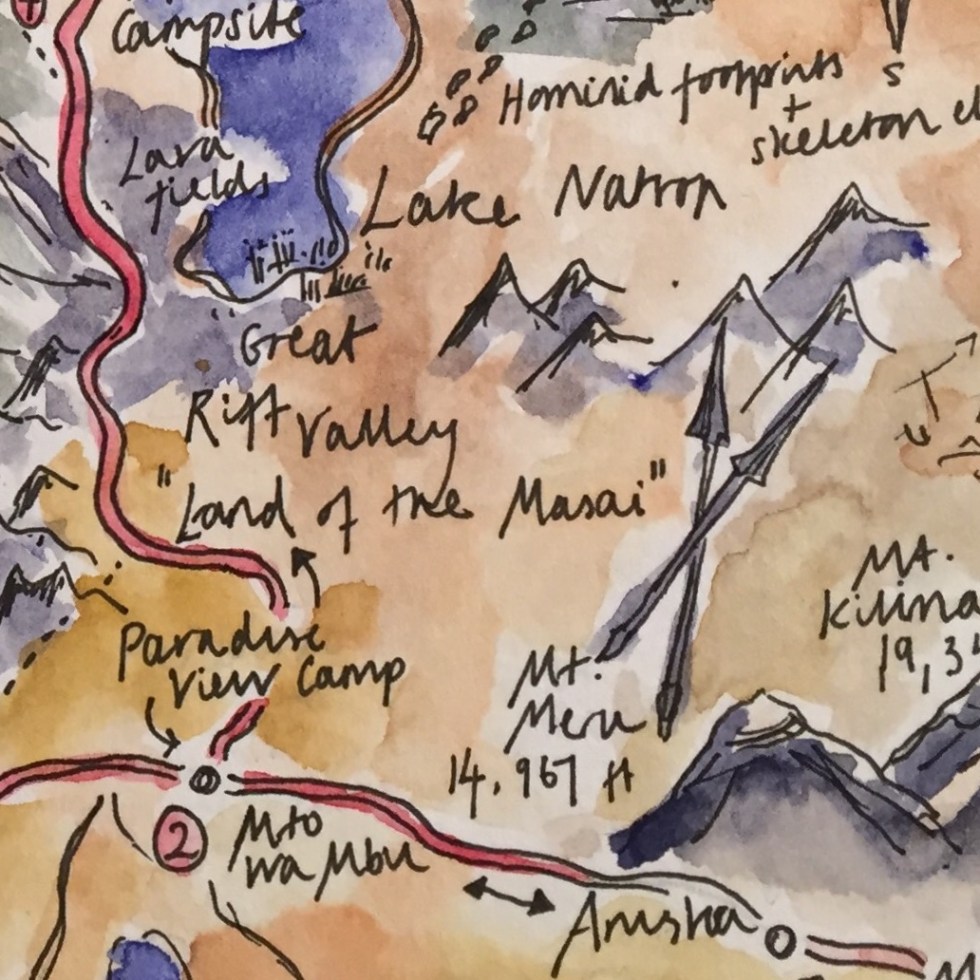 Campsite
Hominid footprints
+
skeleton
S
Lava
fields
Lake Natron
Great
Rift Valley
"Land of the Masai"
Paradise
View Camp
Mt.
Meru
14,967 ft
Mt.
2
Mto
wa Mbu
Arusha